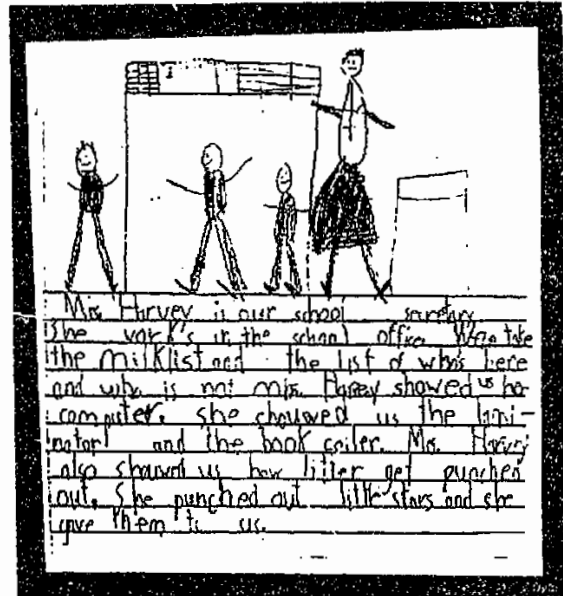 Mrs. Harvey is our school secretary
She work's in the school office. We take
the milk list and the list of who's here
and who is not Mrs. Harvey showed us
computer. she chouwed us the lami-
nator! and the book coiler. Mrs. Harvey
also showd us how litter get punched
out. She punched out little stars and she
gave them to us.